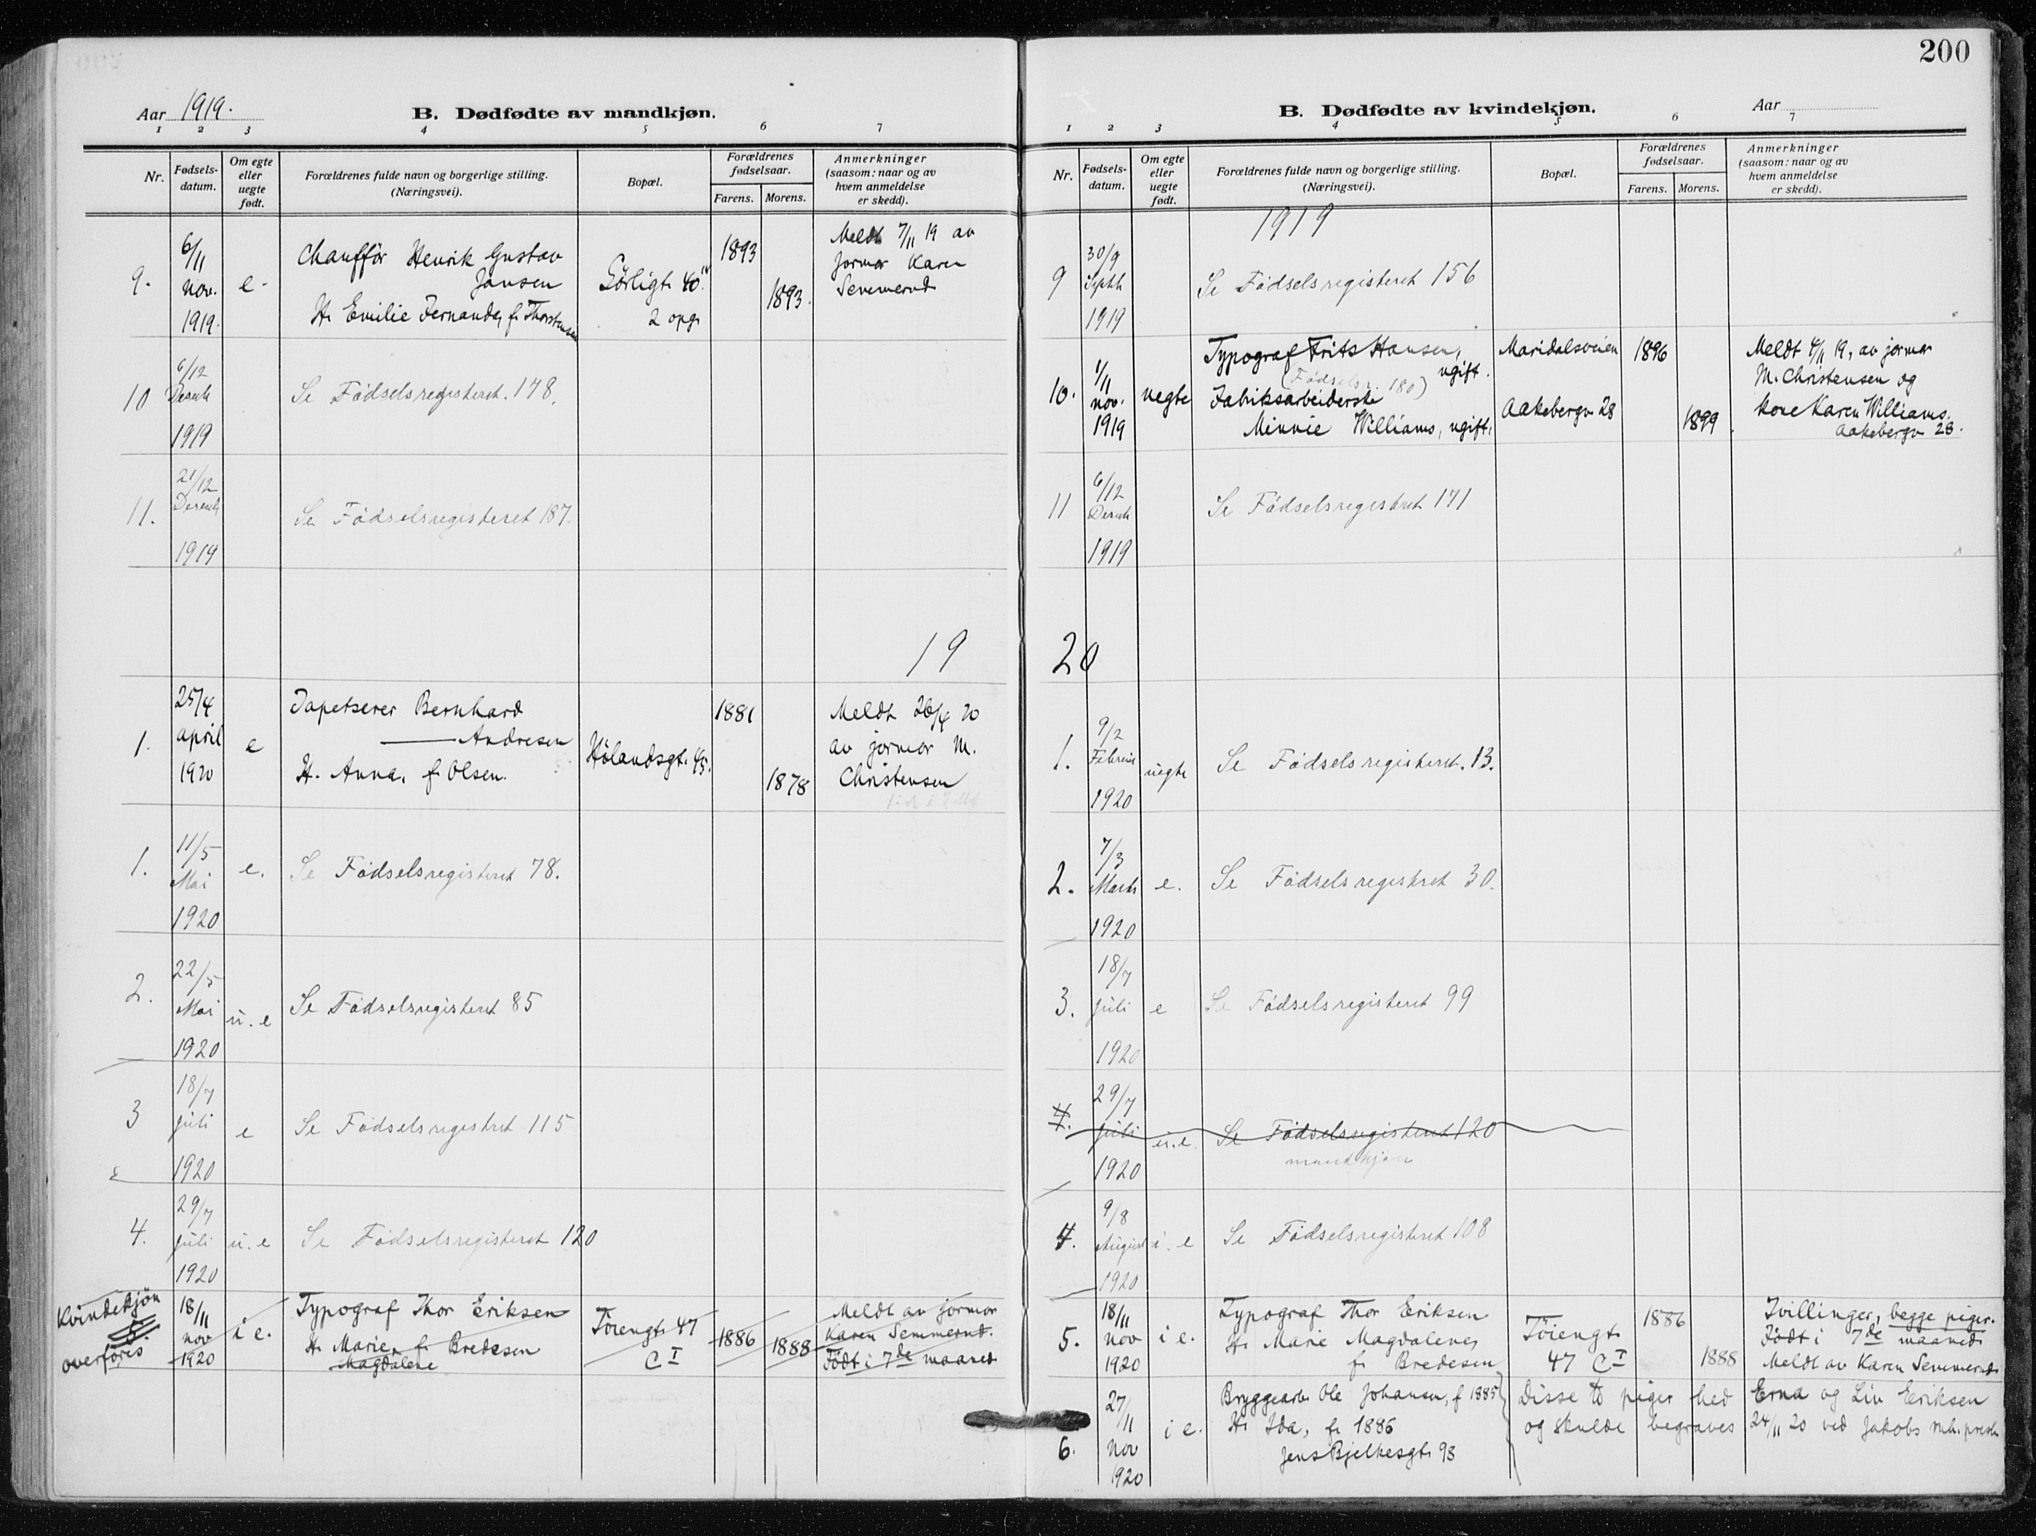 Aar 1919.
B. Dødfødte av mandkjøn.
1 2 3 4 5 6 7
Nr.
Fødsels-
datum.
Om egte
eller
uegte
født.
Forældrenes fulde navn og borgerlige stilling.
(Næringsvei).
Bopæl.
Forældrenes
fødselsaar.
Farens. Morens.
Anmerkninger
(saasom: naar og av
hvem anmeldelse
er skedd).
9. 6/11 nov. 1919. e.
Chauffør Henrik Gustav
Jansen
H. Emilie Fernanda, f. Thorstensen
Sørligt. 40
2 opg.
1893
1893.
Meldt 7/11 19 av
jormor Karen
Semmerud
10 6/12 Decemb 1919
Se Fødselsregisteret. 178.
11. 21/12 Decemb 1919
Se Fødselsregisteret 187.
19
1. 25/4 april 1920 e
Tapetserer Bernhard
Andresen
H. Anna, f. Olsen.
Hølandsgt. 45.
1881
1878
Meldt 26/4 20
av jormor M.
Christensen
1. 11/5 Mai 1920 e.
Se Fødselsregisteret 78.
2. 22/5 Mai 1920 u. e
Se Fødselsregisteret 85
3 18/7 juli 1920 e
Se Fødselsregisteret 115
4. 29/7 juli 1920 u. e
Se Fødselsregisteret 120
Kvindekjøn
5.
overføres
18/11 nov 1920 i e.
Typograf Thor Eriksen
H. Marie, f. Bredesen
Magdalene
Töiengt. 47
C I
1886
1888
Meldt av jormor
Karen Semmerud.
Født i 7de maaned
200
Aar
B. Dødfødte av kvindekjøn.
1 2 3 4 5 6 7
Nr.
Fødsels-
datum.
Om egte
eller
uegte
født.
Forældrenes fulde navn og borgerlige stilling.
(Næringsvei).
Bopæl.
Forældrenes
fødselsaar.
Farens. Morens.
Anmerkninger
(saasom: naar og av
hvem anmeldelse
er skedd).
1919
9 30/9 Septb 1919
Se Fødselsregisteret 156
10. 1/11 nov. 1919 uegte
Typograf Frits Hansen,
ugift.
(Fødselsr. 180)
Fabriksarbeiderske
Minnie Williams, ugift.
Maridalsveien
Aakebergv 28
1896
1899
Meldt 4/11 19, av jormor
M. Christensen og
kone Karen Williams.
Aakebergv 28.
11 6/12 Decemb 1919
Se Fødselsregisteret 171
20
1. 9/2 Februar 1920 uegte
Se Fødselsregisteret. 13.
2. 7/3 Marts 1920 e.
Se Fødselsregisteret 30.
3. 18/7 juli 1920 e
Se Fødselsregisteret 99
4. 29/7 juli 1920 u. e.
Se Fødselsregisteret 120
mandkjøn
4. 9/8 August 1920 i. e
Se Fødselsregisteret 108
5. 18/11 nov 1920 i e.
Typograf Thor Eriksen
H. Marie Magdalene,
f. Bredesen
Töiengt.
47 C I
1886
1888
Tvillinger, begge piger.
Født i 7de maaned
Meldt av Karen Semmerud
6. 27/11 nov 1920 i e.
Bryggearb. Ole Johansen, f 1885
H. Ida, f. 1886
Jens Bjelkesgt. 93
Disse to piger hed Erna og Liv Eriksen
og skulde begraves 24/11 20 ved Jakobs mh. prest